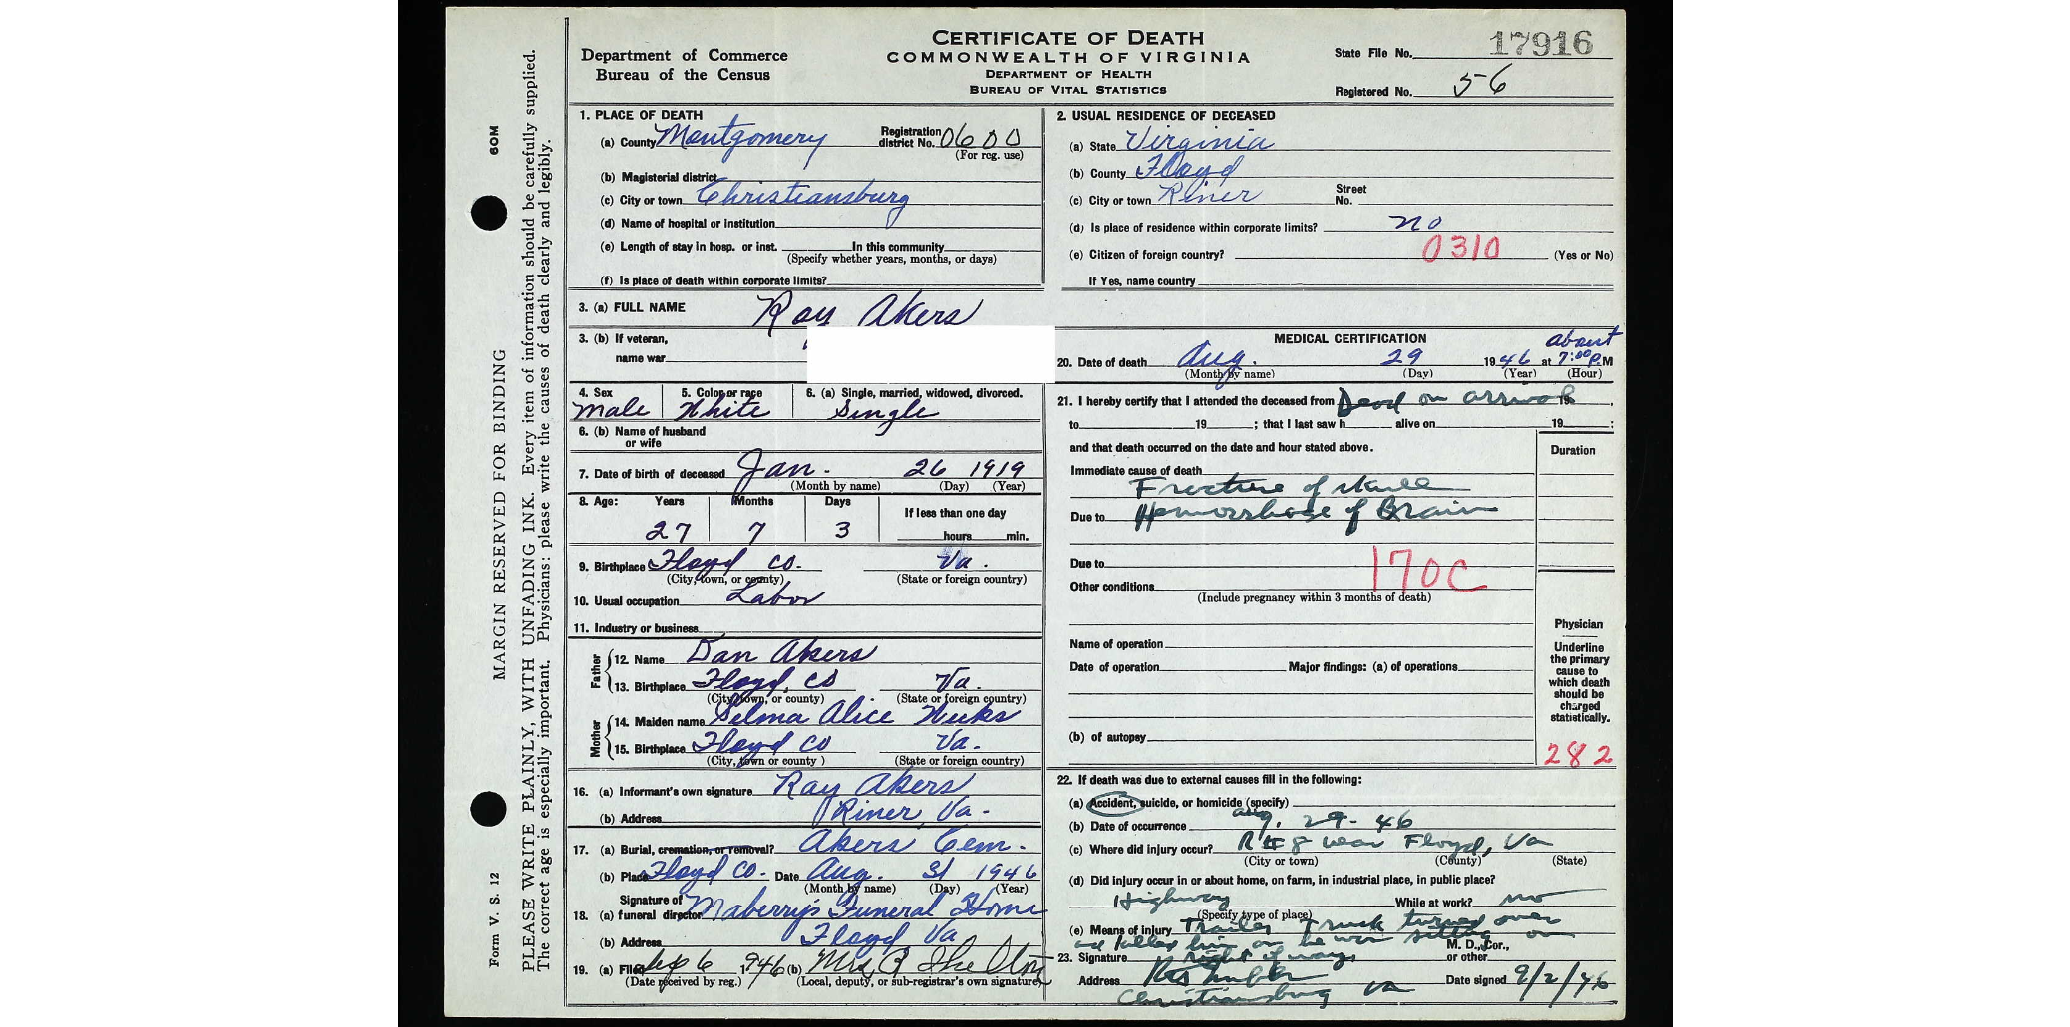 CERTIFICATE OF DEATH
COMMONWEALTH OF VIRGINIA
DEPARTMENT OF HEALTH
BUREAU OF VITAL STATISTICS
Department of Commerce
Bureau of the Census
State File No. 17916
Registered No. 56
60M
MARGIN RESERVED FOR BINDING
PLEASE WRITE PLAINLY, WITH UNFADING INK. Every item of information should be carefully supplied.
The correct age is especially important. Physicians: please write the causes of death clearly and legibly.
Form V. S. 12
1. PLACE OF DEATH
(a) County Montgomery Registration district No. 0600
(For reg. use)
(b) Magisterial district
(c) City or town Christiansburg
(d) Name of hospital or institution
(e) Length of stay in hosp. or inst. In this community
(Specify whether years, months, or days)
(f) Is place of death within corporate limits?
2. USUAL RESIDENCE OF DECEASED
(a) State Virginia
(b) County Floyd
(c) City or town Riner Street No.
(d) Is place of residence within corporate limits? no
(e) Citizen of foreign country? 0310 (Yes or No)
If Yes, name country
3. (a) FULL NAME Roy Akers
3. (b) If veteran,
name war
4. Sex 5. Color or race 6. (a) Single, married, widowed, divorced.
Male White Single
6. (b) Name of husband
or wife
7. Date of birth of deceased Jan. 26 1919
(Month by name) (Day) (Year)
8. Age: Years Months Days If less than one day
27 7 3 hours min.
9. Birthplace Floyd Co. Va.
(City, town, or county) (State or foreign country)
10. Usual occupation Labor
11. Industry or business
Father
12. Name Dan Akers
13. Birthplace Floyd, Co Va.
(City, town, or county) (State or foreign country)
Mother
14. Maiden name Selma Alice Weeks
15. Birthplace Floyd Co Va.
(City, town or county ) (State or foreign country)
16. (a) Informant's own signature Ray Akers
(b) Address Riner, Va.
17. (a) Burial, cremation, or removal? Akers Cem.
(b) Place Floyd Co. Date Aug. 31 1946
(Month by name) (Day) (Year)
Signature of
18. (a) funeral director Maberry's Funeral Home
(b) Address Floyd Va
19. (a) Filed Sep 6 1946 (b) Mrs. R Shelton
(Date received by reg.) (Local, deputy, or sub-registrar's own signature)
MEDICAL CERTIFICATION about
20. Date of death Aug. 29 1946 at 7:00 P.M
(Month by name) (Day) (Year) (Hour)
21. I hereby certify that I attended the deceased from Dead on arrival 19 ,
to 19 ; that I last saw h alive on 19 ;
and that death occurred on the date and hour stated above. Duration
Immediate cause of death
Fracture of skull
Due to Hemorrhage of Brain
Due to
170C
Other conditions
(Include pregnancy within 3 months of death)
Name of operation
Date of operation Major findings: (a) of operations
(b) of autopsy
Physician
Underline
the primary
cause to
which death
should be
charged
statistically.
282
22. If death was due to external causes fill in the following:
(a) Accident, suicide, or homicide (specify)
(b) Date of occurrence Aug. 29-46
(c) Where did injury occur? Rt 8 near Floyd, Va
(City or town) (County) (State)
(d) Did injury occur in or about home, on farm, in industrial place, in public place?
Highway While at work? no
(Specify type of place)
(e) Means of injury Trailer Truck turned over
and killed him as he was sitting on
right of way
M. D., Cor.,
23. Signature or other
Address Christiansburg Va Date signed 9/2/46